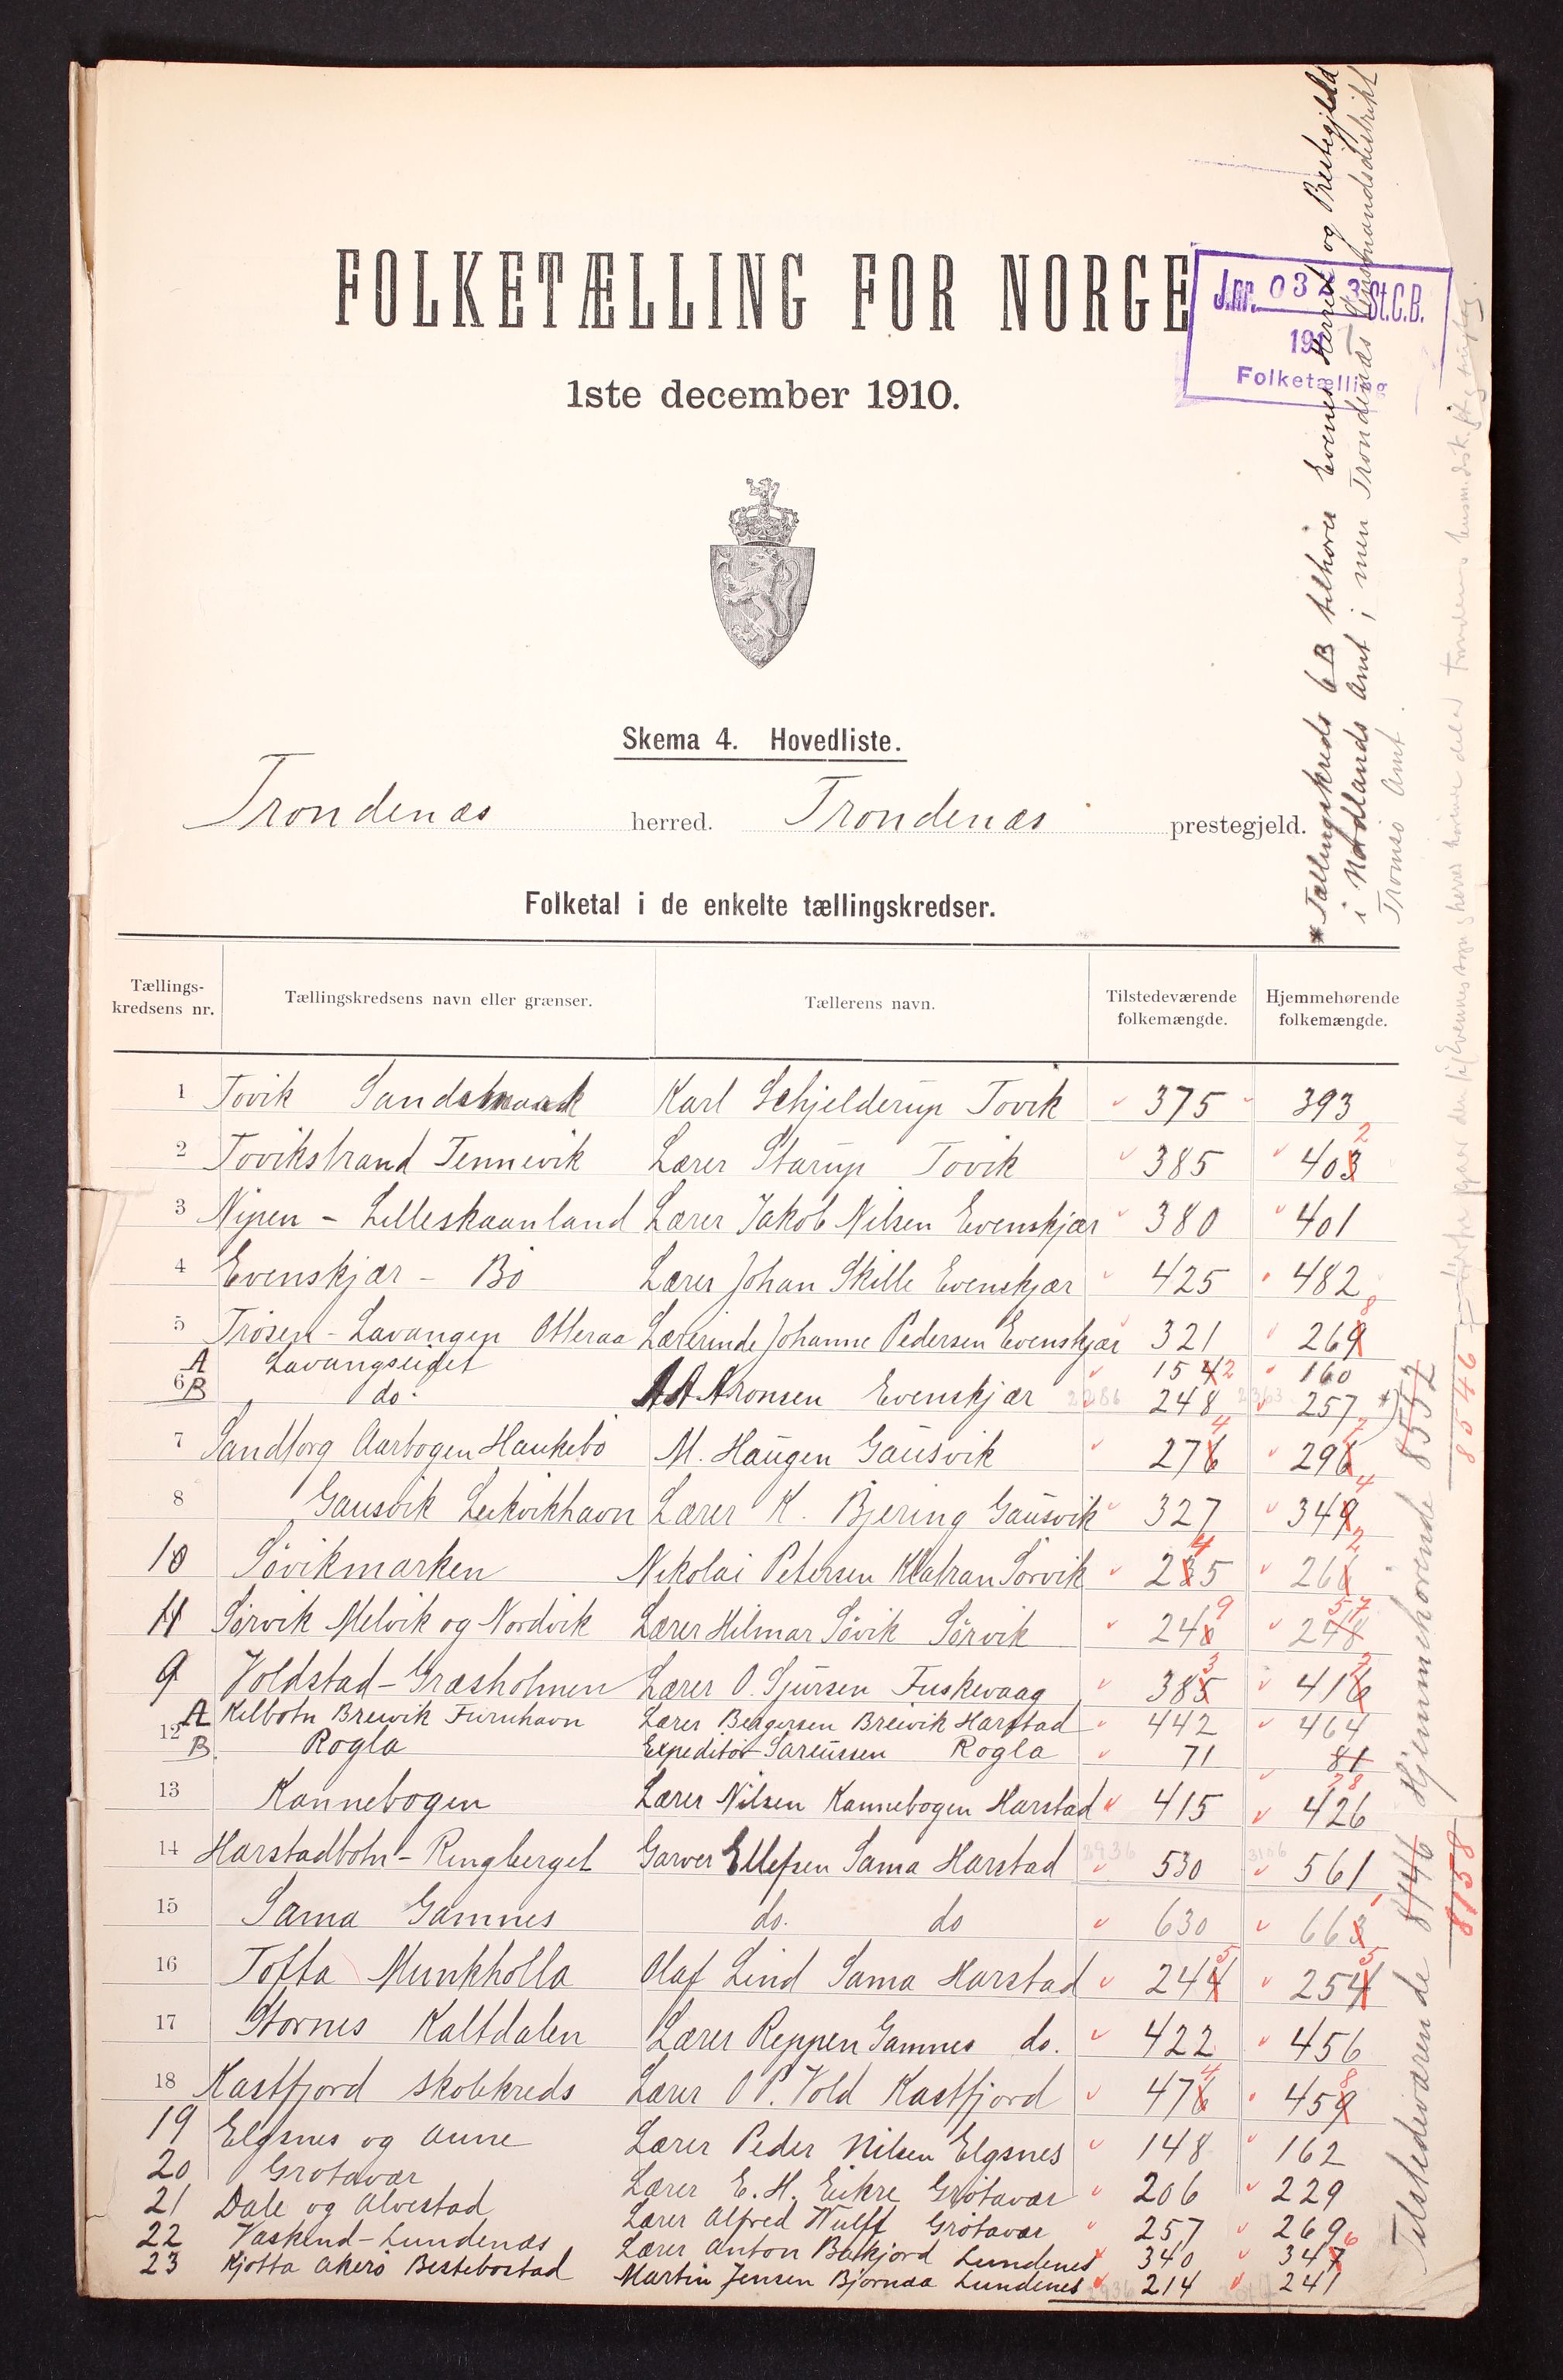 FOLKETÆLLING FOR NORGE
J.nr. 03 St.C.B.
191
Folketælling
1ste december 1910.
Skema 4. Hovedliste.
Trondenæs herred. Trondenæs prestegjeld.
Folketal i de enkelte tællingskredser.
Tællings-kredsens nr. Tællingskredsens navn eller grænser. Tællerens navn. Tilstedeværende folkemængde. Hjemmehørende folkemængde.
1 Tovik Sandstraand Karl Schjelderup Tovik 375 393
2 Tovikstrand Tennevik Lærer Starup Tovik 385 403 2
3 Nipen - Lilleskaanland Lærer Jakob Nilsen Evenskjær 380 401
4 Evenskjær - Bø Lærer Johan Skille Evenskjær 425 482
5 Trøsen - Lavangen Otteraa Lærerinde Johanne Pedersen Evenskjær 321 269 8
A Lavangseidet 154 2 160
6 B do. A A Aronsen Evenskjær 2286 248 2363 257 *)
7 Sandtorg Aarbogen Haukebø M. Haugen Gausvik 276 4 296 2
8 Gausvik Leikvikhavn Lærer K. Bjering Gausvik 327 349 4
10 Sövikmarken Nikolai Petersen Klatran Sørvik 235 4 266 2
11 Sørvik Melvik og Nordvik Lærer Hilmar Sövik Sørvik 248 9 278 57
9 Voldstad - Græsholmen Lærer O. Sjursen Fuskevaag 385 3 416 2
A Kilbotn Breivik Furuhavn Lærer Bergersen Breivik Harstad 442 464
12 B Rogla Expeditør Sareussen Rogla 71 81 78
13 Kannebogen Lærer Nilsen Kannebogen Harstad 415 426
14 Harstadbotn - Ringberget Garver Ellefsen Sama Harstad 2936 530 3106 561
15 Sama Gamnes do. do 630 663 1
16 Tofta Munkholla Olaf Lind Sama Harstad 244 5 254 5
17 Stornes Kaltdalen Lærer Reppen Gamnes do. 422 456
18 Kastfjord skolekreds Lærer O P. Vold Kastfjord 476 4 459 8
19 Elgsnes og Aune Lærer Peder Nilsen Elgsnes 148 162
20 Grøtavær Lærer E. H. Eikre Grøtavær 206 229
21 Dale og Alvestad Lærer Alfred Wulff Grøtavær 257 269
22 Vaskind - Lundenæs Lærer Anton Bakkjord Lundenes 340 347 6
23 Kjøtta Akerø Bestebostad Martin Jensen Bjørnaa Lundenes 214 241
* Tællingskreds 6 B tilhører Evenes Herred og Prestegjeld
i Nordlands Amt; men Trondenæs Lensmandsdistrikt
Tromsø Amt.
Tilstedeværende 8146 Hjemmehørende 8552
8158 8546